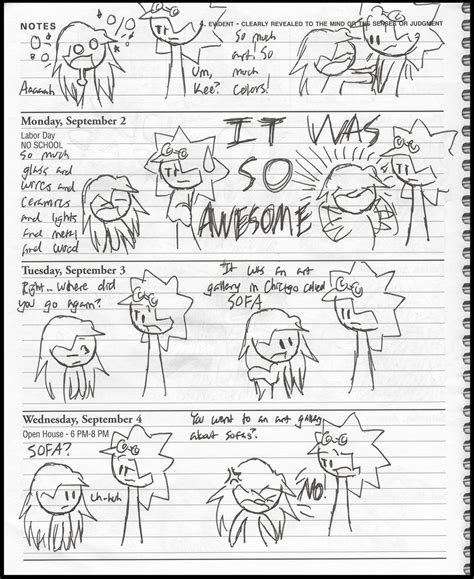 NOTES
4. EVIDENT - CLEARLY REVEALED TO THE MIND OR THE SENSES OR JUDGMENT
Aaaaaah
Um,
Kee?
So much
art so
much
colors!
Monday, September 2
Labor Day
NO SCHOOL
So much
glass and
wires and
ceramics
and lights
and metal
and wood
IT WAS
SO
AWESOME
Tuesday, September 3
Right... Where did
you go again?
It was an art
gallery in Chicago called
SOFA
Wednesday, September 4
Open House - 6 PM-8 PM
SOFA?
Uh-huh
You went to an art gallery
about sofas?
NO!